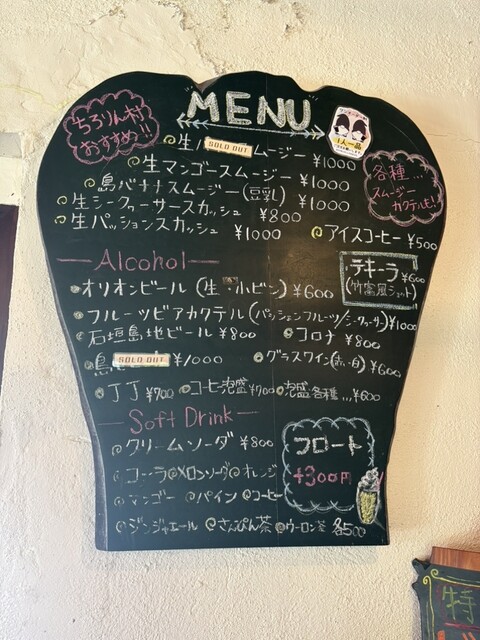 MENU
ちろりん村
おすすめ!!
1人一品
生パ SOLD OUT ムージー ¥1000
生マンゴースムージー ¥1000
島バナナスムージー(豆乳) ¥1000
生シークヮーサースカッシュ ¥800
生パッションスカッシュ ¥1000
各種...
スムージー
カクテルも!
アイスコーヒー ¥500
Alcohol
テキーラ ¥600
(竹富風ショット)
オリオンビール (生・小ビン) ¥600
フルーツビアカクテル (パッションフルーツ/シークヮーサー) ¥1000
石垣島地ビール ¥800
コロナ ¥800
島 SOLD OUT ¥1000
グラスワイン(赤い・白) ¥600
丁丁 ¥700 コーヒー泡盛 ¥700 泡盛各種... ¥600
Soft Drink
クリームソーダ ¥800
コーラ メロンソーダ オレンジ
マンゴー パイン コーヒー
ジンジャエール さんぴん茶 ウーロン茶 各500
フロート
+300円
特